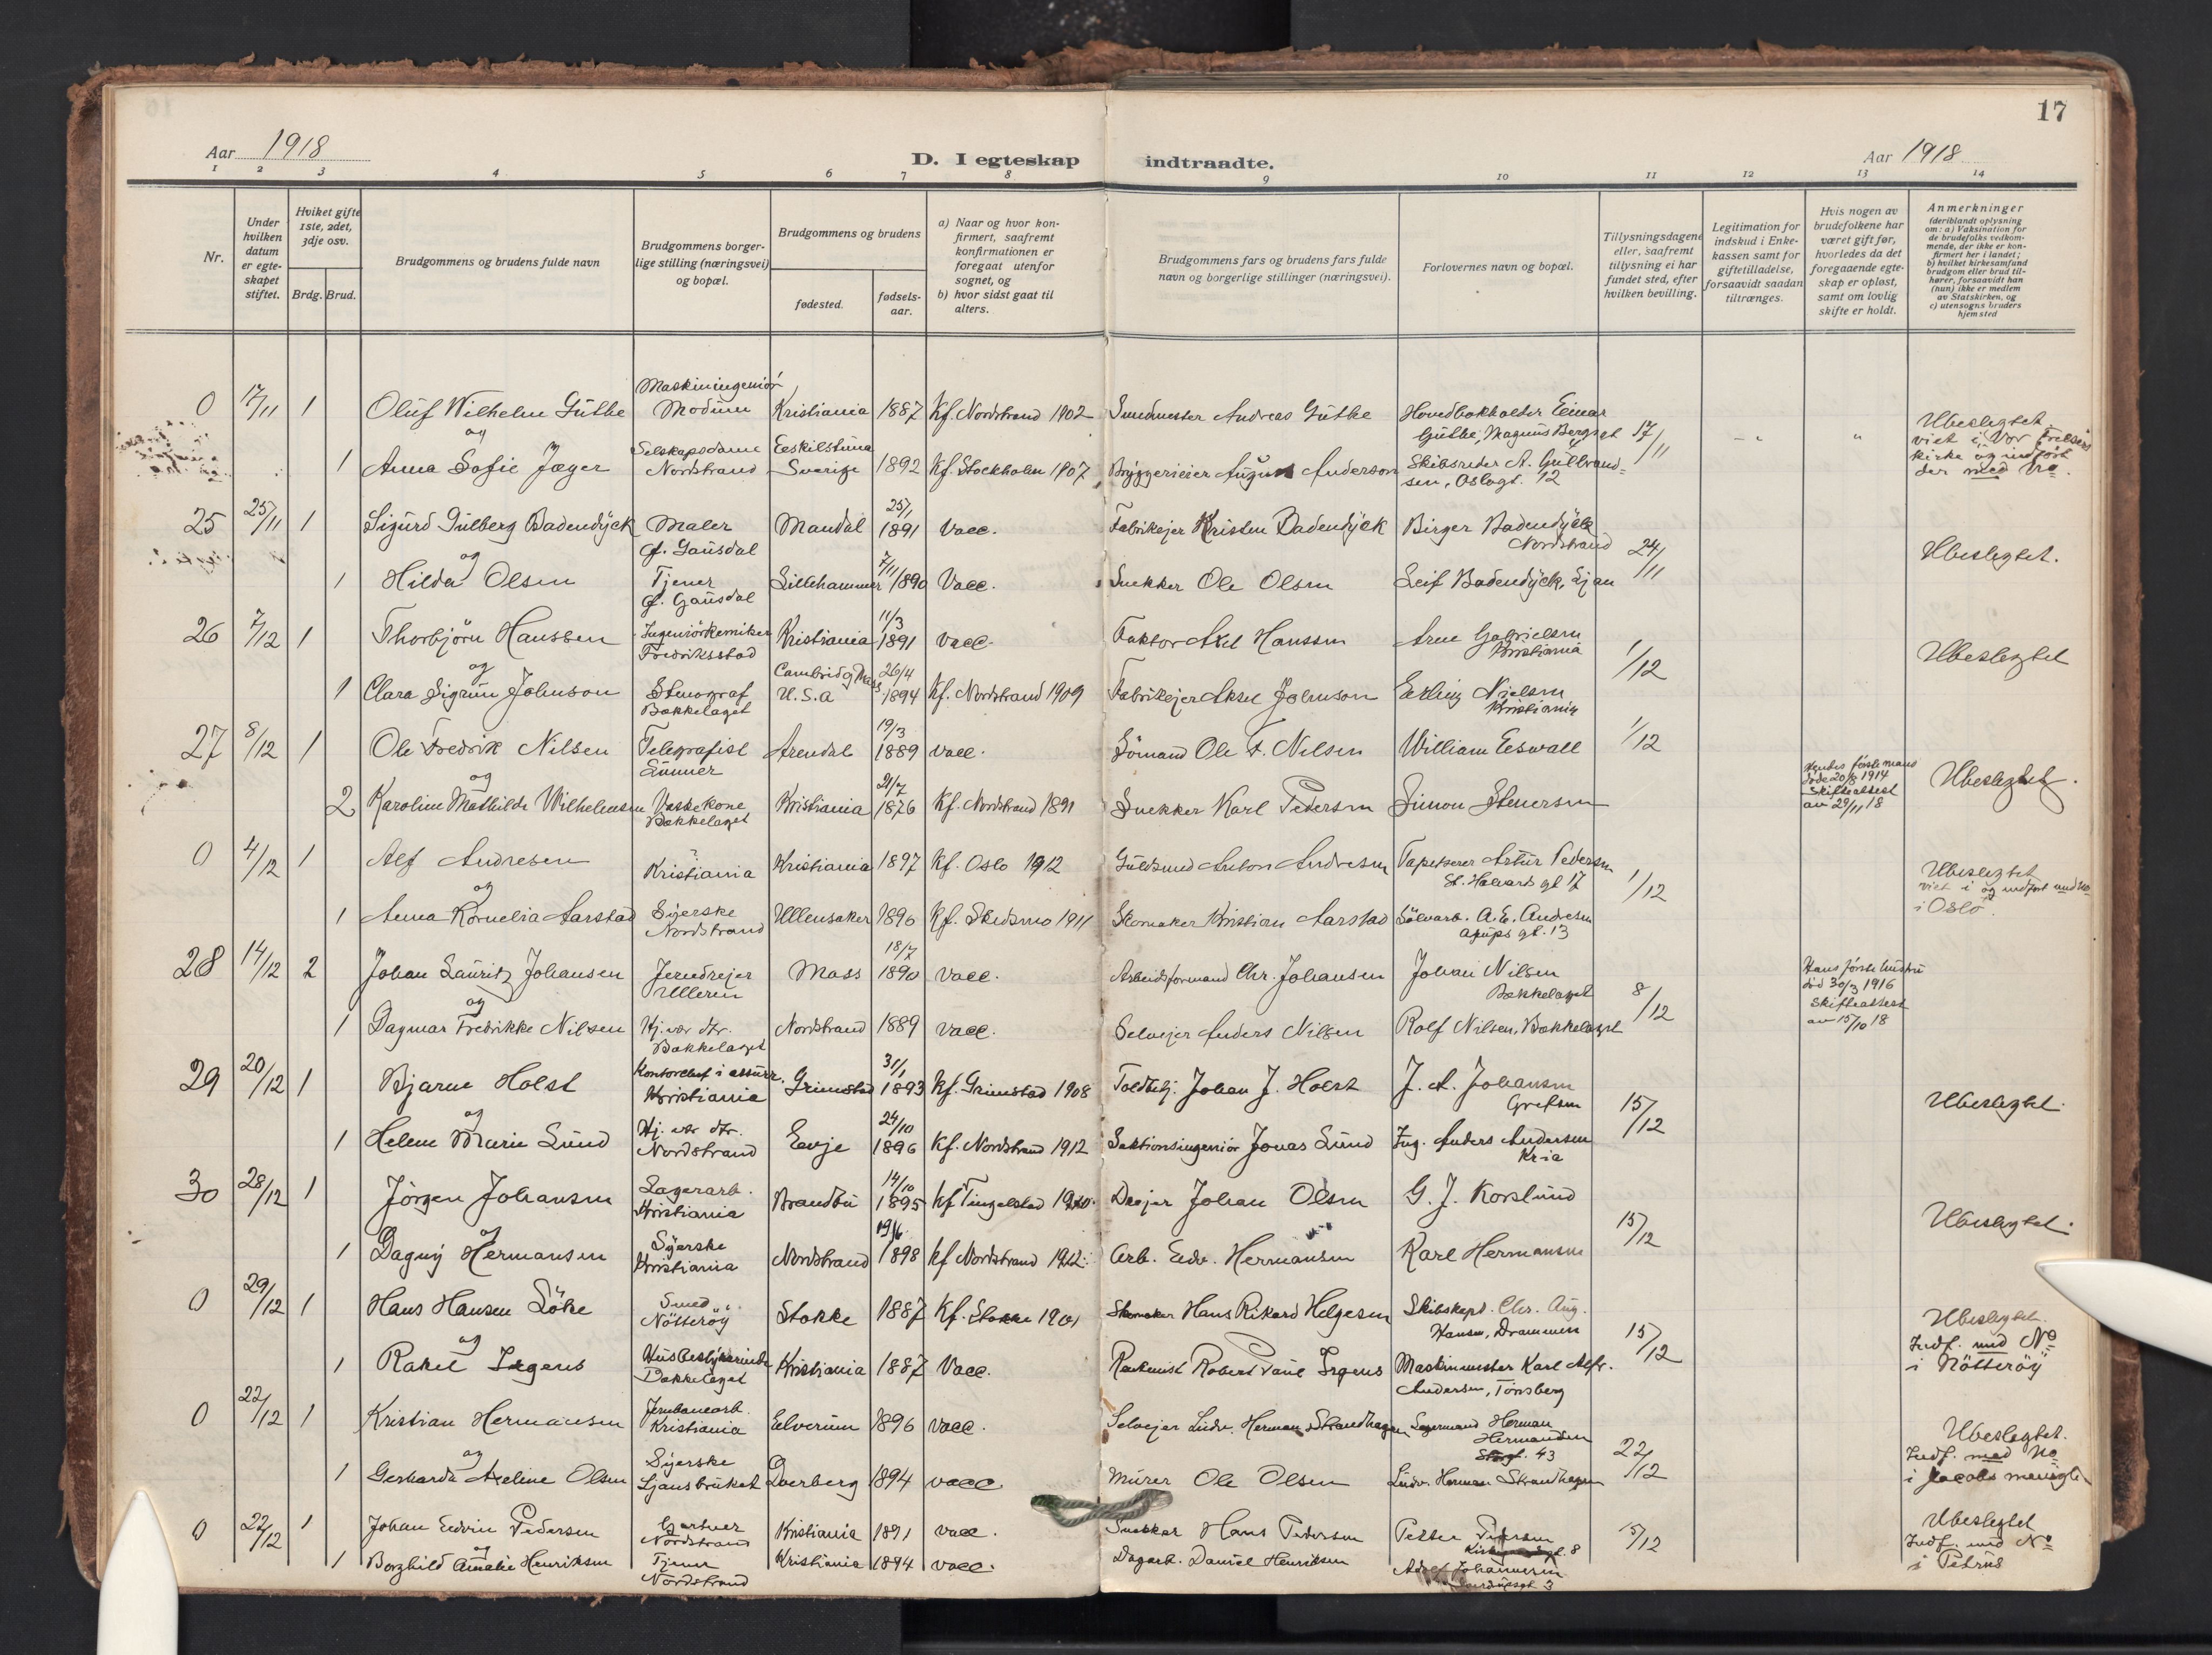 17
Aar 1918
D. I egteskap indtraadte.
Aar 1918
1 2 3 4 5 6 7 8 9 10 11 12 13 14
Nr.
Under hvilken datum er egteskapet stiftet.
Hviket gifte 1ste, 2det, 3dje osv.
Brdg. Brud.
Brudgommens og brudens fulde navn
Brudgommens borgerlige stilling (næringsvei) og bopæl.
Brudgommens og brudens
fødested.
fødselsaar.
a) Naar og hvor konfirmert, saafremt konfirmationen er foregaat utenfor sognet, og
b) hvor sidst gaat til alters.
Brudgommens fars og brudens fars fulde navn og borgerlige stillinger (næringsvei).
Forlovernes navn og bopæl.
Tillysningsdagene eller, saafremt tillysning ei har fundet sted, efter hvilken bevilling.
Legitimation for indskud i Enkekassen samt for giftetilladelse, forsaavidt saadan tiltrænges.
Hvis nogen av brudefolkene har været gift før, hvorledes da det foregaaende egteskap er opløst, samt om lovlig skifte er holdt.
Anmerkninger (deriblandt oplysning om: a) Vaksination for de brudefolks vedkommende, der ikke er konfirmert her i landet; b) hvilket kirkesamfund brudgom eller brud tilhører, forsaavidt han (hun) ikke er medlem av Statskirken, og c) utensogns bruders hjemsted
0 17/11 1 Oluf Wilhelm Güthe Maskiningeniör Modum Kristiania 1887 Kf. Nordstrand 1902 Andreas Güthe Hovedbokholder Einar Güthe, Magnus Bergsgt 17/11 Ubeslegtet viet i Vor Frelsers kirke og indført der med No.
og
1 Anna Sofie Jæger Selskapsdame Nordstrand Eskilstuna Sverige 1892 Kf. Stockholm 1907 Bryggerieier August Anderson Skibsreder A. Gulbrandsen, Oslogt. 12
25 25/11 1 Sigurd Gulberg Badendÿck Maler Ø. Gausdal Mandal 25/1 1891 Vacc. Fabrikejer Kristen Badendÿck Birger Badendÿck Nordstrand 24/11 Ubeslegtet.
og
1 Hilda Olsen Tjener Ø. Gausdal Lillehammer 7/11 1890 Vacc. Snekker Ole Olsen Leif Badendÿck, Ljan
26 7/12 1 Thorbjörn Hanssen Ingeniörkemiker Fredriksstad Kristiania 11/3 1891 vacc. Faktor Axel Hanssen Arne Gabrielsen Kristiania 1/12 Ubeslegtet
og
1 Clara Sigrun Johnson Stenograf Bækkelaget Cambridg Mass U.S.A 26/4 1894 Kf. Nordstrand 1909 Fabrikejer Aksel Johnson Erling Nielsen Kristiania
27 8/12 1 Ole Fredrik Nilsen Telegrafist Arendal 19/3 1889 vacc. Sömand Ole F. Nilsen William Eswall 1/12 Hendes første mand døde 20/8 1914 Skifteattest av 29/11 18 Ubeslegtet.
og
2 Karoline Mathilde Wilhelmsen Vaskekone Bækkelaget Kristiania 21/7 1876 Kf. Nordstrand 1891 Snekker Karl Pedersen Simon Stenersen
0 4/12 1 Alf Andresen Kristiania Kristiania 1897 Kf. Oslo 1912 Guldsmed Anton Andresen Tapetserer Artur Pedersen St. Halvards gt 17 1/12 Ubeslegtet viet i og indført med No i Oslo.
og
1 Anna Kornelia Aarstad Syerske Nordstrand Ullensaker 1896 Kf. Skedsmo 1911 Skomaker Kristian Aarstad Sölvarb. A.E. Andresen gt. 13
28 14/12 2 Johan Lauritz Johansen Jerndrejer Ullern Moss 18/7 1890 vacc. Arbeidsformand Chr. Johansen Johan Nilsen Bækkelaget 8/12 Hans første hustru död 30/3 1916 Skifteattest av 15/10 18
og
1 Dagmar Fredrikke Nilsen Hj. vær. dtr. Bækkelaget Nordstrand 1889 vacc. Selvejer Anders Nilsen Rolf Nilsen, Bækkelaget
29 20/12 1 Bjarne Holst Kontorchef i assur. Kristiania Grimstad 31/1 1893 Kf. Grimstad 1908 Toldbetj. Johan J. Holst J. A. Johansen Grefsen 15/12 Ubeslegtet.
og
1 Helene Marie Lund Hj. vær. dtr. Nordstrand Evje 24/10 1896 Kf. Nordstrand 1912 Sektionsingeniör Jonas Lund Ing. Anders Andersen Kr-ia
30 28/12 1 Jörgen Johansen Lagerarb. Kristiania Brandbu 14/10 1895 Kf Tingelstad 1910. Drejer Johan Olsen G. J. Korslund 15/12 Ubeslegtet.
og
1 Dagny Hermansen Syerske Kristiania Nordstrand 1898 Kf Nordstrand 1912. Arb. Edv. Hermansen Karl Hermansen
0 29/12 1 Hans Hansen Löke Smed Nötteröy Stokke 1887 Kf. Stokke 1901 Skomaker Hans Rikard Helgesen Skibskapt. Chr. Aug. Hansen, Drammen 15/12 Ubeslegtet. Indf. med No i Nötteröy
og
1 Rakel Irgens Husbestyrerinde Bækkelaget Kristiania 1887 Vacc. Robert Paul Irgens Maskinmester Karl Alfr. Andersen, Tönsberg
0 22/12 1 Kristian Hermansen Jernbanearb. Kristiania Elverum 1896 vacc. Selvejer Ludv. Herman Strandhagen Lagermand Herman Hermansen 43 22/12 Ubeslegtet. Indf. med No i Jacobs menigh.
og
1 Gerharda Aveline Olsen Syerske Ljansbruket Dverberg 1894 vacc. Murer Ole Olsen Ludv. Herman Strandhagen
0 22/12 1 Johan Edvin Pedersen Gartner Nordstrand Kristiania 1891 vacc. Snekker Hans Pedersen Petter Petersen 8 15/12 Ubeslegtet Indf. med No i Petrus
og
1 Borghild Amalie Henriksen Tjener Nordstrand Kristiania 1894 vacc. Dagarb. Daniel Henriksen Adolf Johannesen 3